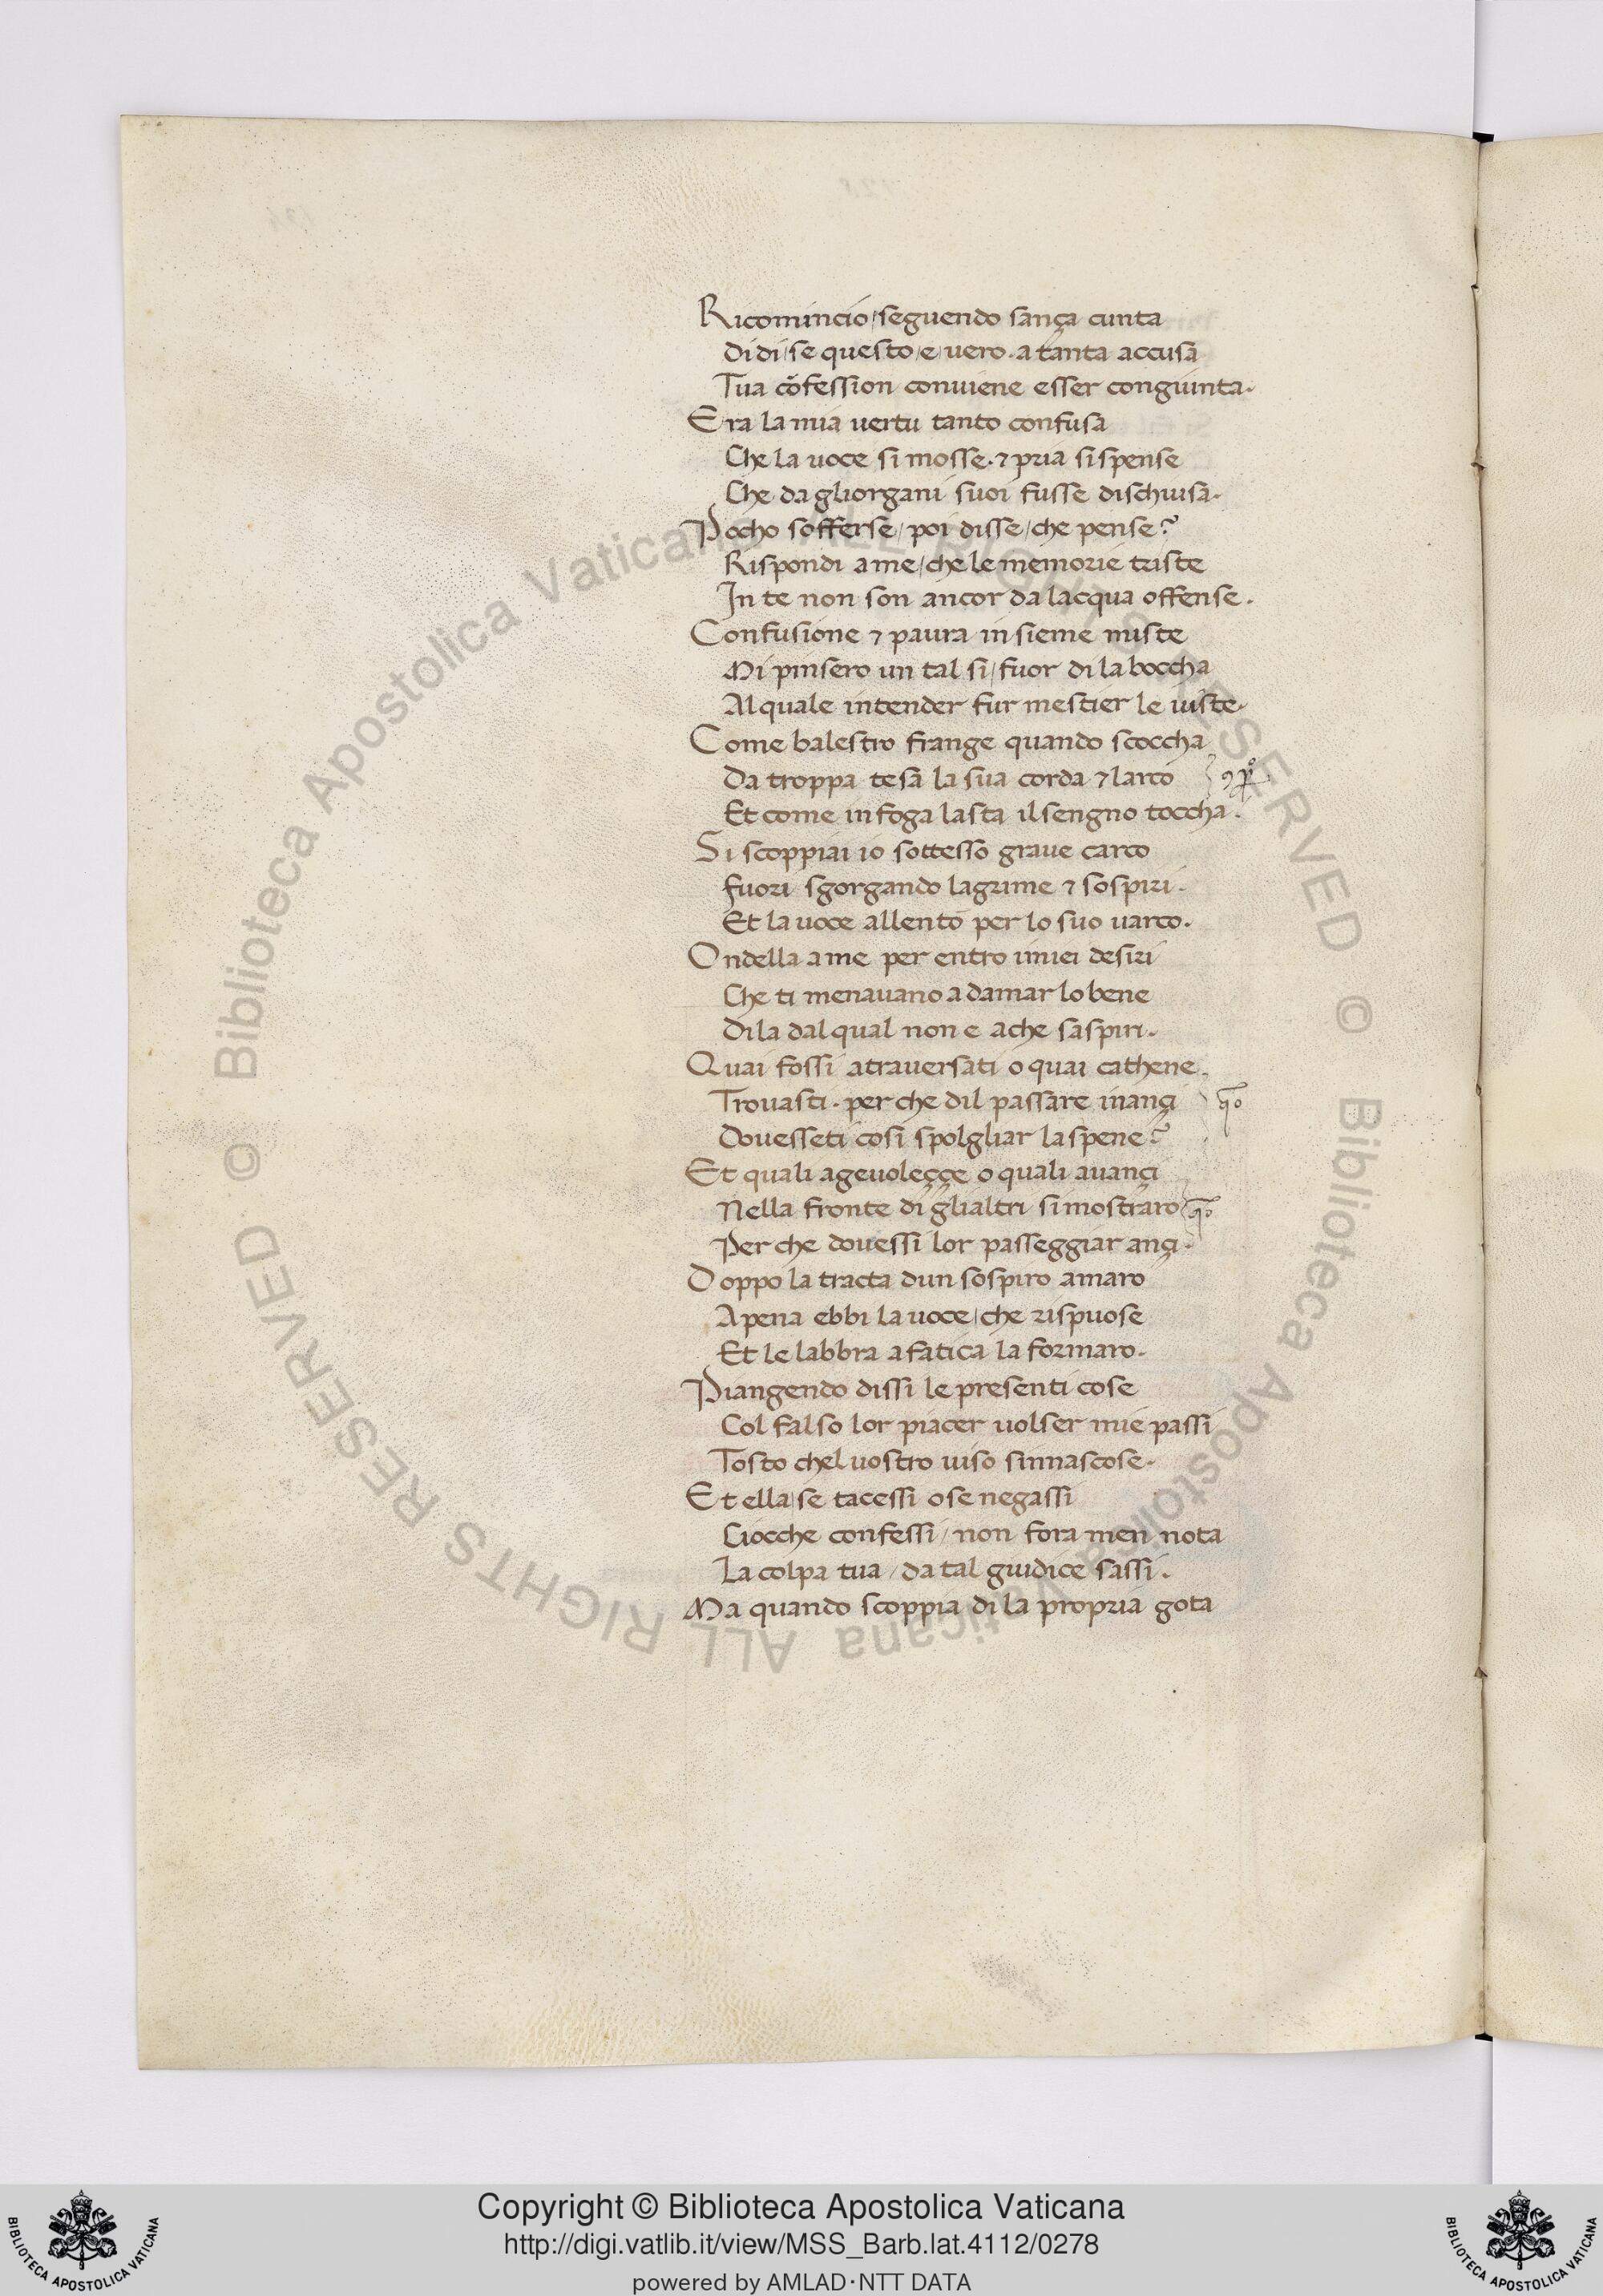 Ricomincio/seguendo sança cunta
Di di/se questo/e/uero. a tanta accusa
Tua cõfession conuiene esser congiunta.
Era la mia uertu tanto confusa
Che la uoce si mosse. ⁊ pria si spense
Che da gliorgani suoi fusse dischiusa.
Pocho sofferse/poi disse/che pense?
Rispondi a me/che le memorie triste
In te non son ancor da lacqua offense.
Confusione ⁊ paura insieme miste
Mi pinsero un tal si/fuor di la boccha
Al quale intender fur mestier le uiste.
Come balestro frange quando scoccha
Da troppa tesa la sua corda ⁊ larco
Et come in foga lasta il sengno toccha.
Si scoppiai io sottesso graue carco
fuori sgorgando lagrime ⁊ sospiri.
Et la uoce allento per lo suo uarco.
Ondella a me per entro imiei desiri
Che ti menauano a damar lo bene
Di la dal qual non e a che saspiri.
Quai fossi atrauersati o quai cathene.
Trouasti. per che dil passare inançi
Douesseti cosi spolgliar la spene?
Et quali ageuoleççe o quali auançi
Nella fronte di glialtri si mostraro
Per che douessi lor passeggiar ançi.
Doppo la tracta dun sospiro amaro
Apena ebbi la uoce/che rispuose
Et le labbra a fatica la formaro.
Piangendo dissi le presenti cose
Col falso lor piacer uolser mie passi
Tosto chel uostro uiso sinnascose.
Et ella/se tacessi o se negassi
Ciocche confessi/non fora men nota
La colpa tua/da tal giudice sassi.
Ma quando scoppia di la propria gota
© Biblioteca Apostolica Vaticana ALL RIGHTS RESERVED
© Biblioteca Apostolica Vaticana ALL RIGHTS RESERVED
BIBLIOTECA APOSTOLICA VATICANA
Copyright © Biblioteca Apostolica Vaticana
http://digi.vatlib.it/view/MSS_Barb.lat.4112/0278
powered by AMLAD·NTT DATA
BIBLIOTECA APOSTOLICA VATICANA